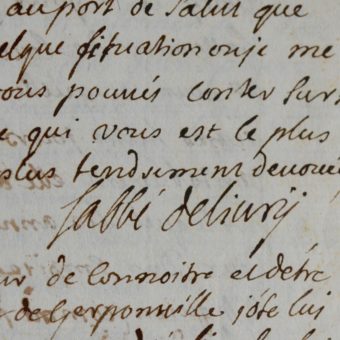 au port de Salut que
elque situation ou je me
vous pouvés conter sur
e qui vous est le plus
plus tendrement devoué
l'abbé de livry
ur de connoitre et d'etre
de Gerponville j'ose lui